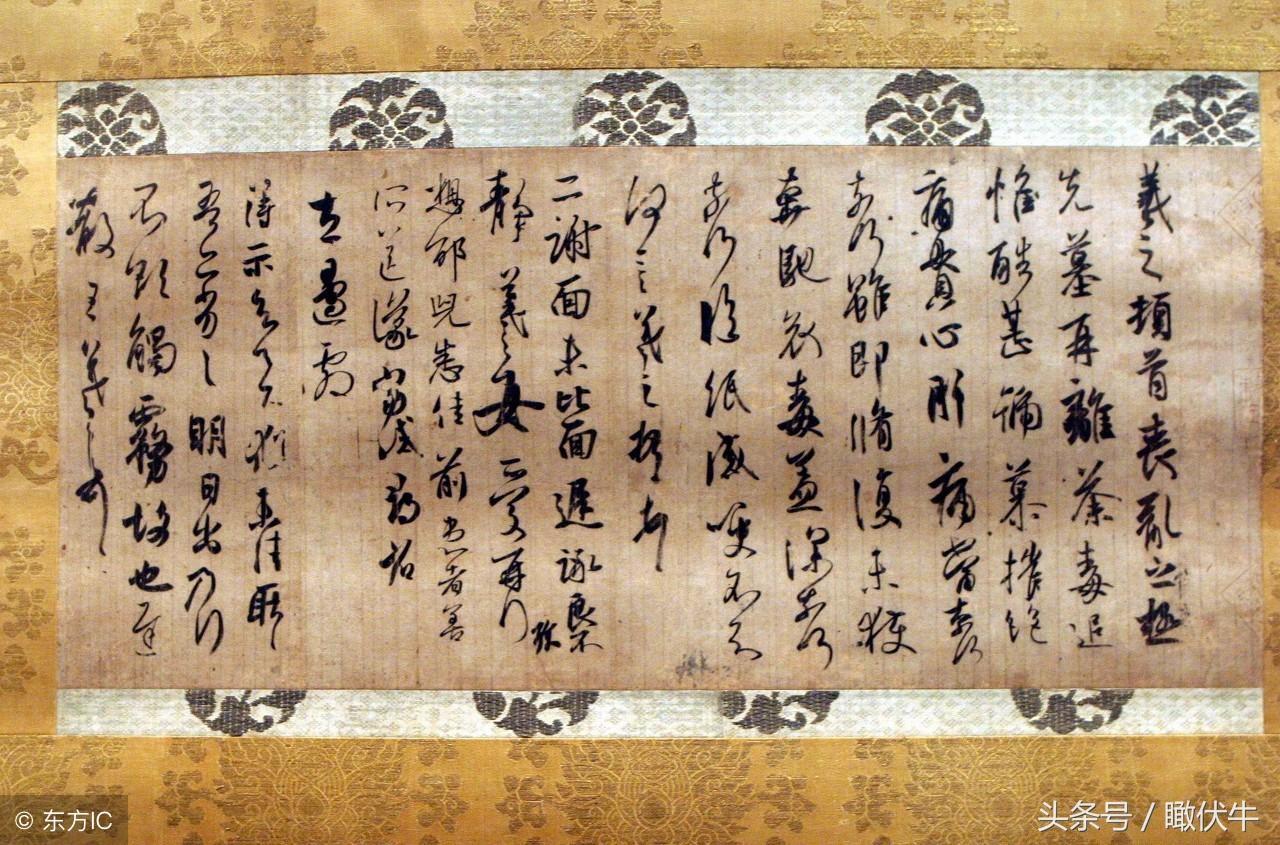 羲之頓首喪亂之極
先墓再離荼毒追
惟酷甚號慕摧絕
痛貫心肝痛當奈何
奈何雖即脩復未獲
奔馳哀毒益深奈何
奈何臨紙感哽不知
何言羲之頓首頓首
二謝面未比面遲詠良不
靜羲之女愛再拜
想邵兒悉佳前患者善
所送議當試尋省
左邊劇
得示知足下猶未佳耿耿
吾亦劣劣明日出乃行
不欲觸霧故也遲
散王羲之頓首
© 东方IC
头条号 / 瞰伏牛